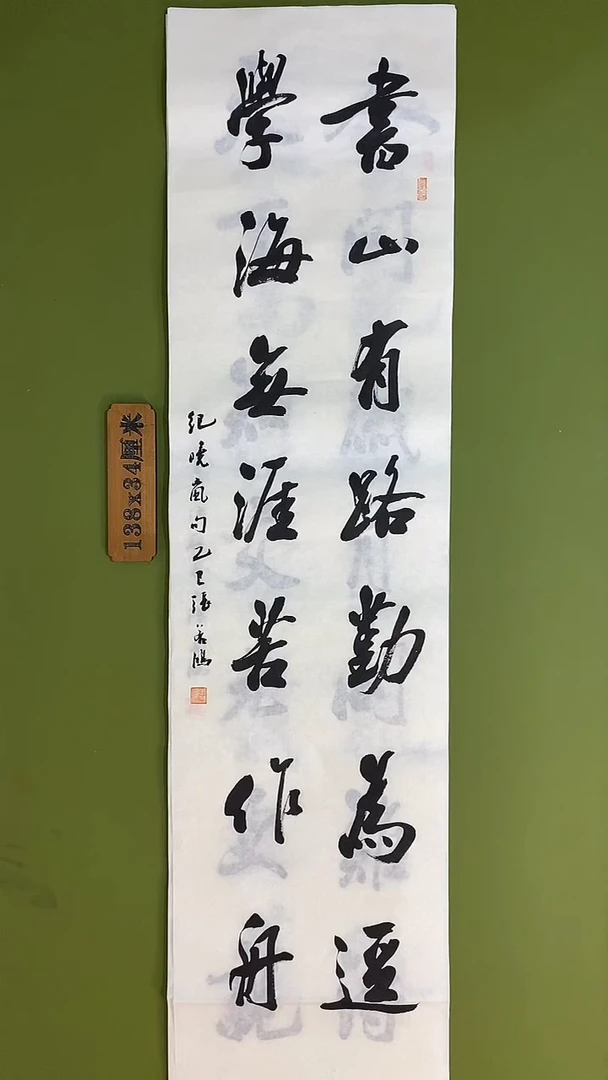 書山有路勤為逕
學海無涯苦作舟
紀曉嵐句乙巳張
138x34厘米